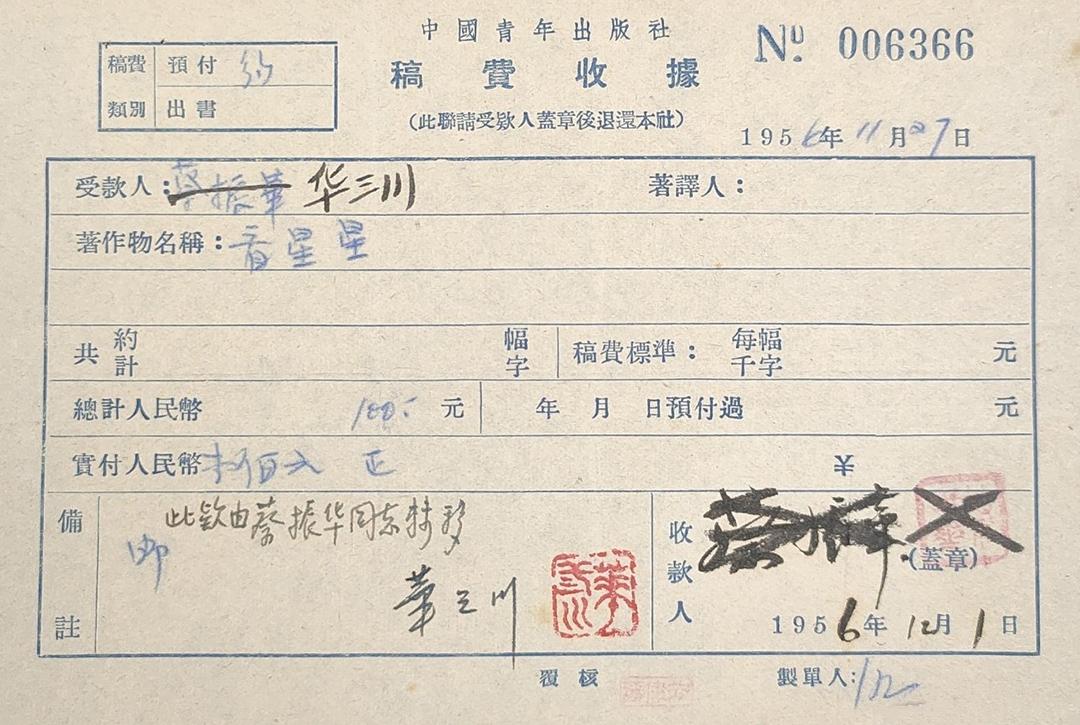 中國青年出版社
稿費收據
(此聯請受欵人蓋章後退還本社)
No. 006366
稿費類別 預付
出書
1956年11月27日
受款人：蔡振華 华三川 著譯人：
著作物名稱：看星星
共 約計 幅字 稿費標準： 每幅千字 元
總計人民幣 100.- 元 年 月 日預付過 元
實付人民幣 百元正 ¥
備註 此欵由蔡振华同志轉移
華三川
華三川
收款人 蔡振華 (蓋章)
1956年12月1日
覆核 製單人：